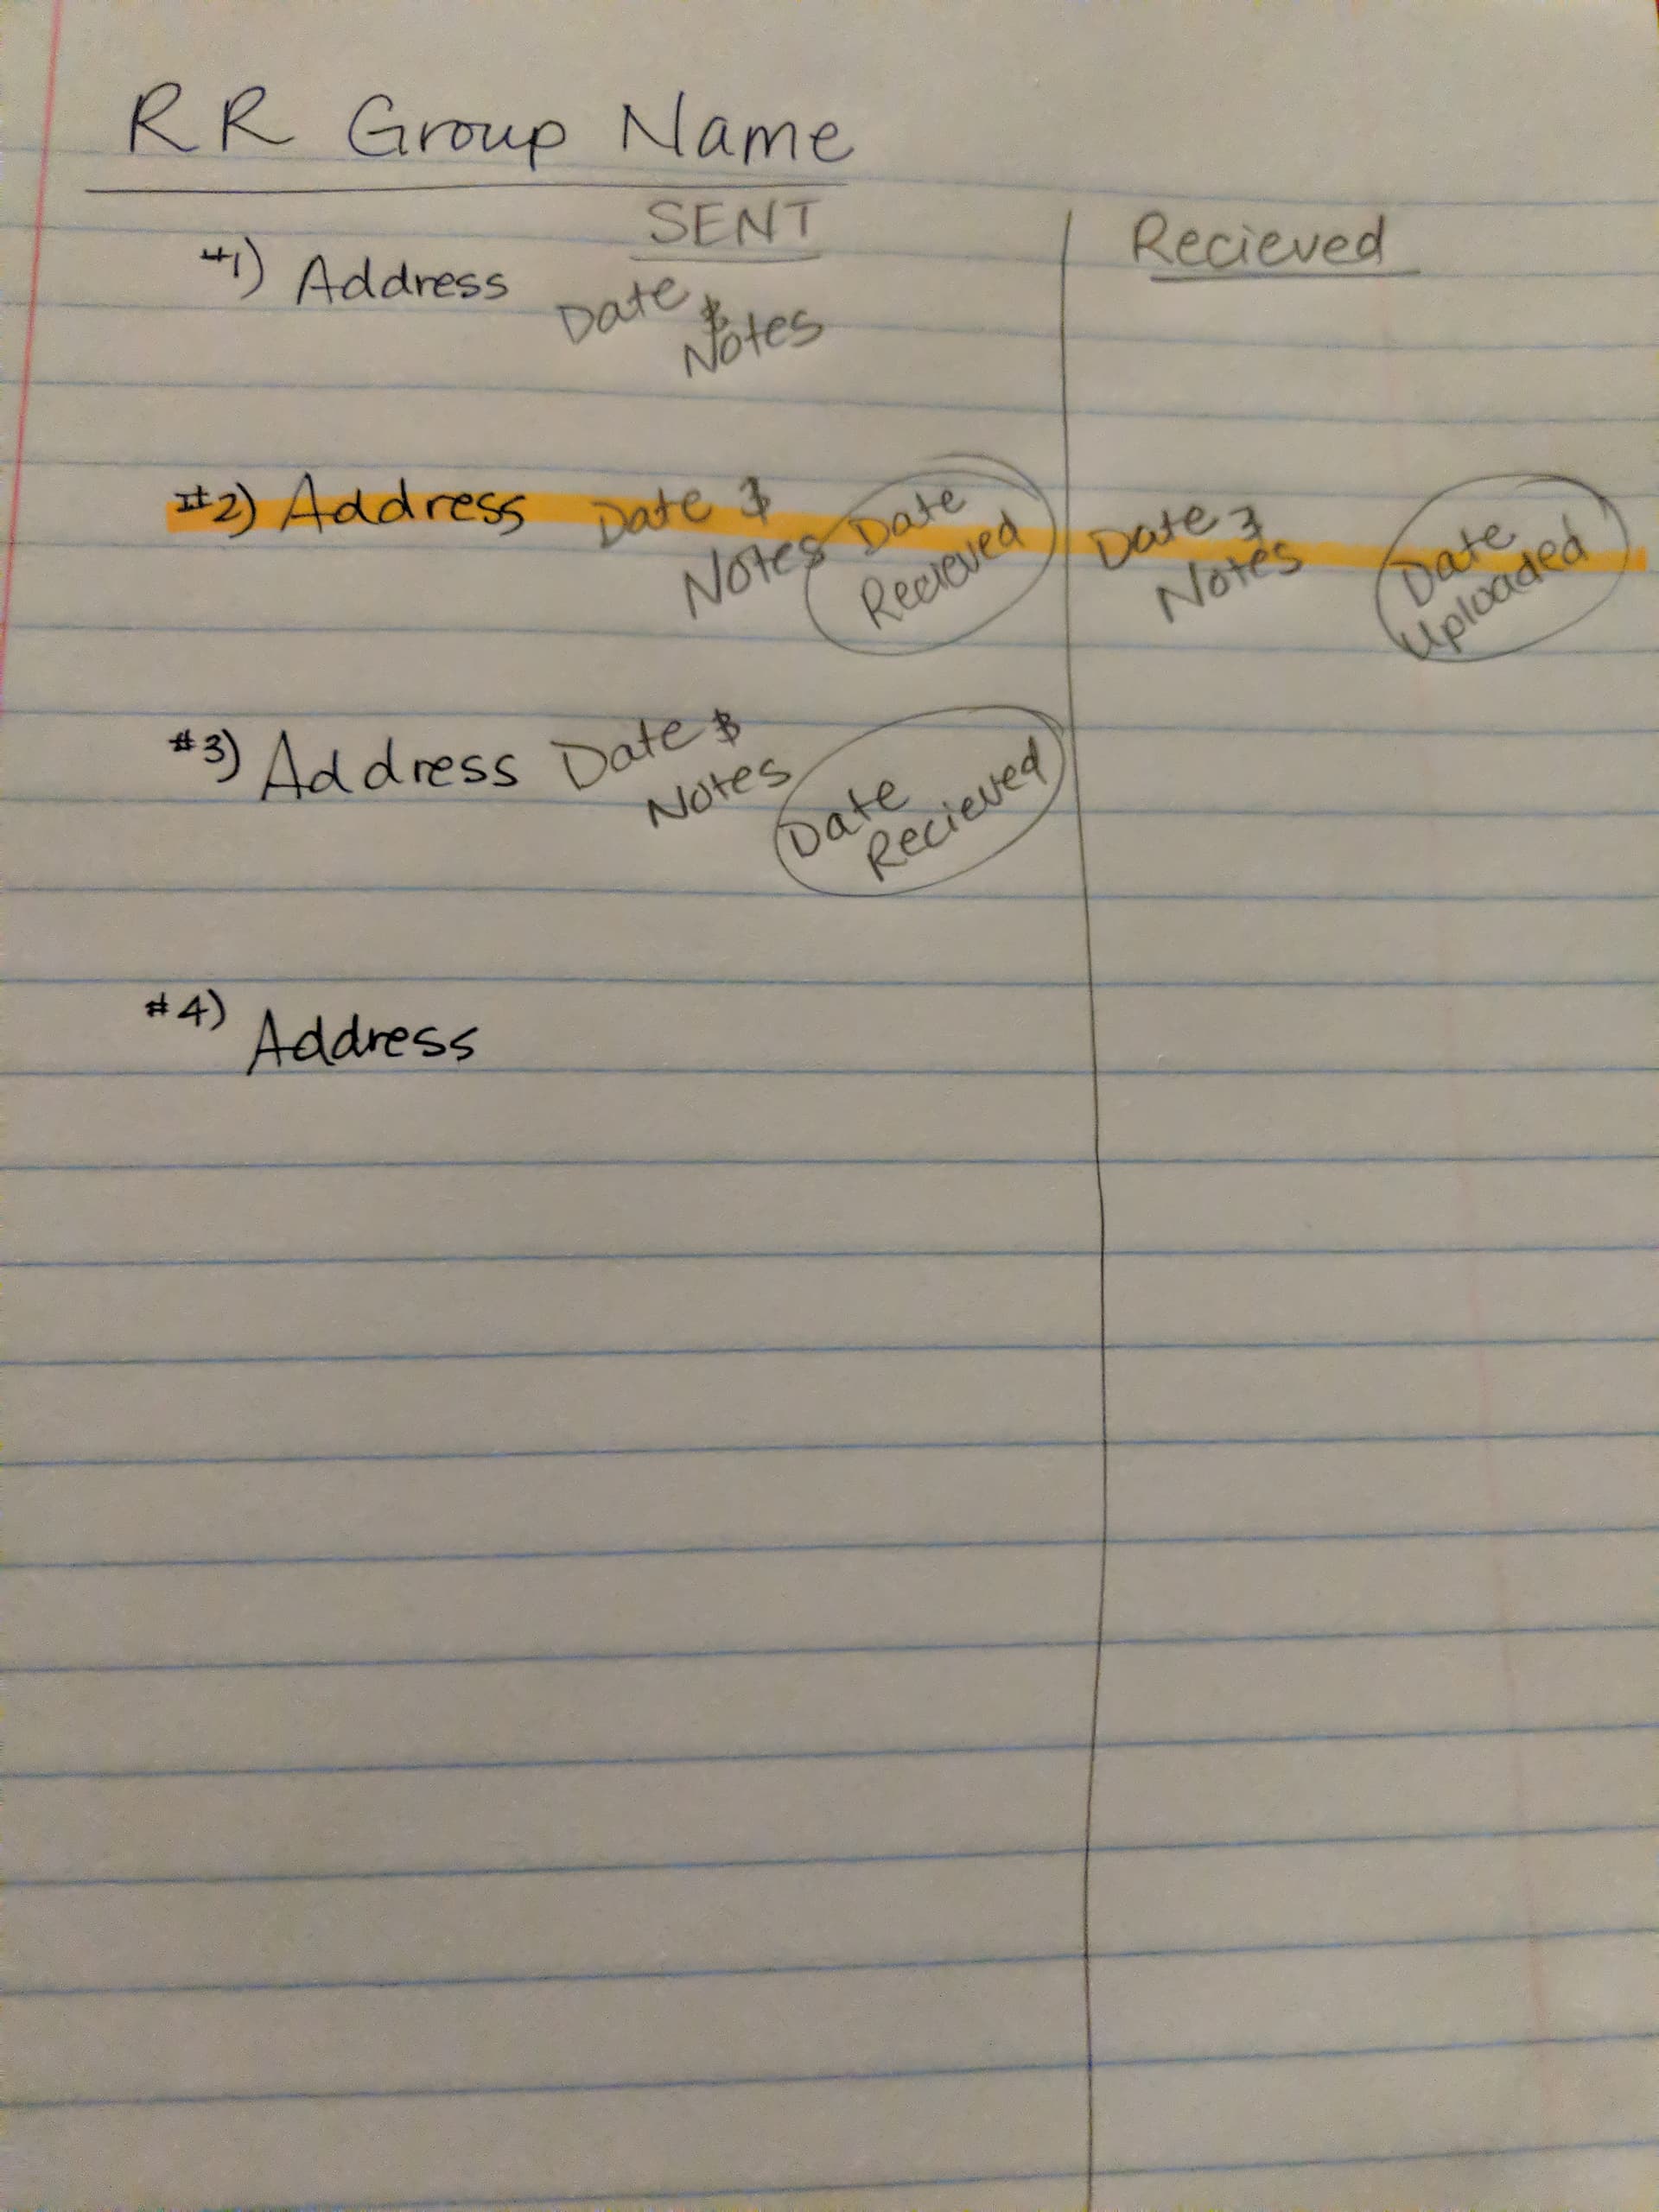 RR Group Name
SENT
Recieved
#1) Address
Date &
Notes
#2) Address Date &
Notes
Date
Recieved
Date &
Notes
Date
Uploaded
#3) Address Date &
Notes
Date
Recieved
#4) Address